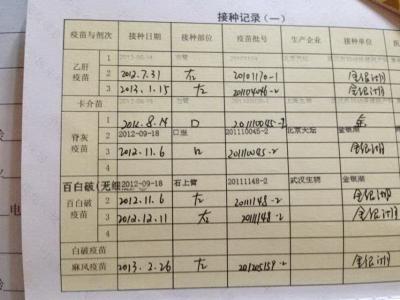 接种记录（一）
疫苗与剂次 接种日期 接种部位 疫苗批号 生产企业 接种单位
乙肝疫苗 1
2 2012.7.31 左 20101170-1 金银湖
3 2013.1.15 左 金银湖
卡介苗
脊灰疫苗 1 2012.8.14 口 201110045-2
2 2012-09-18 口服 201110045-2 北京天坛 金银湖
3 2012.11.6 口 20111045-2 金银湖
百白破(无细 2012-09-18 石上臂 20111148-2 武汉生物 金银湖
百白破疫苗 2 2012.11.6 左 20111148-2 金银湖
3 2012.12.11 左 20111148-2 金银湖
4
白破疫苗
麻风疫苗 2013.2.26 左 201205159-2 金银湖